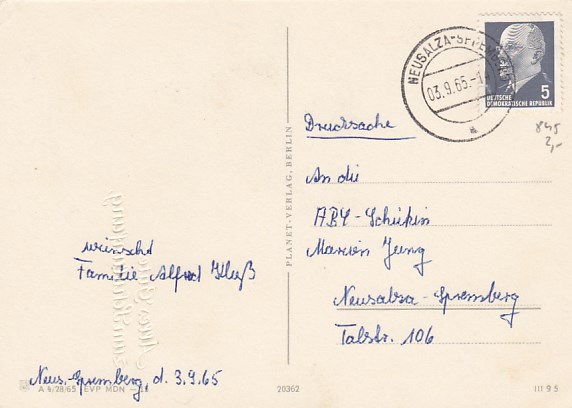 NEUSALZA-SPREMBERG
03.9.65.-1
a
DEUTSCHE
DEMOKRATISCHE REPUBLIK
5
845
2,-
Drucksache
An die
ABY-Schükin
Marion Jung
Neusalza-Spremberg
Talstr. 106
PLANET-VERLAG, BERLIN
wünscht
Familie Alfred
Neus.-Spremberg, d. 3.9.65
A 4/28/65 EVP MDN
20362
III 9 5